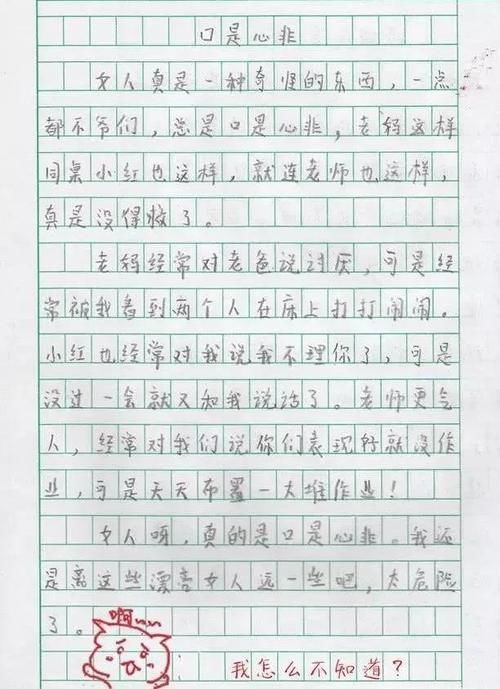 口是心非
女人真是一种奇怪的东西，一点
都不爷们，总是口是心非，老妈这样
同桌小红也这样，就连老师也这样，
真是没得救了。
老妈经常对老爸说讨厌，可是经
常被我看到两个人在床上打打闹闹。
小红也经常对我说我不理你了，可是
没过一会就又和我说话了。老师更气
人，经常对我们说你们表现好就没作
业，可是天天布置一大堆作业！
女人呀，真的是口是心非。我还
是离这些漂亮女人远一些吧，太危险
了。
啊~~
我怎么不知道？